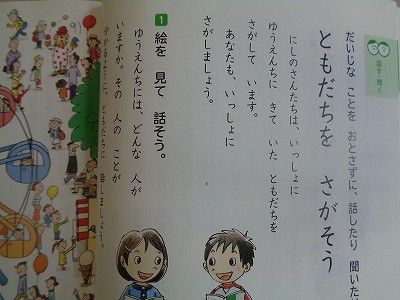 話す・聞く
だいじな ことを おとさずに、話したり 聞いた
ともだちを さがそう
にしのさんたちは、いっしょに
ゆうえんちに きて いた ともだちを
さがして います。
あなたも、いっしょに
さがしましょう。
1 絵を 見て 話そう。
ゆうえんちには、どんな 人が
いますか。その 人の ことが
分かるように、ともだちに 話しましょう。